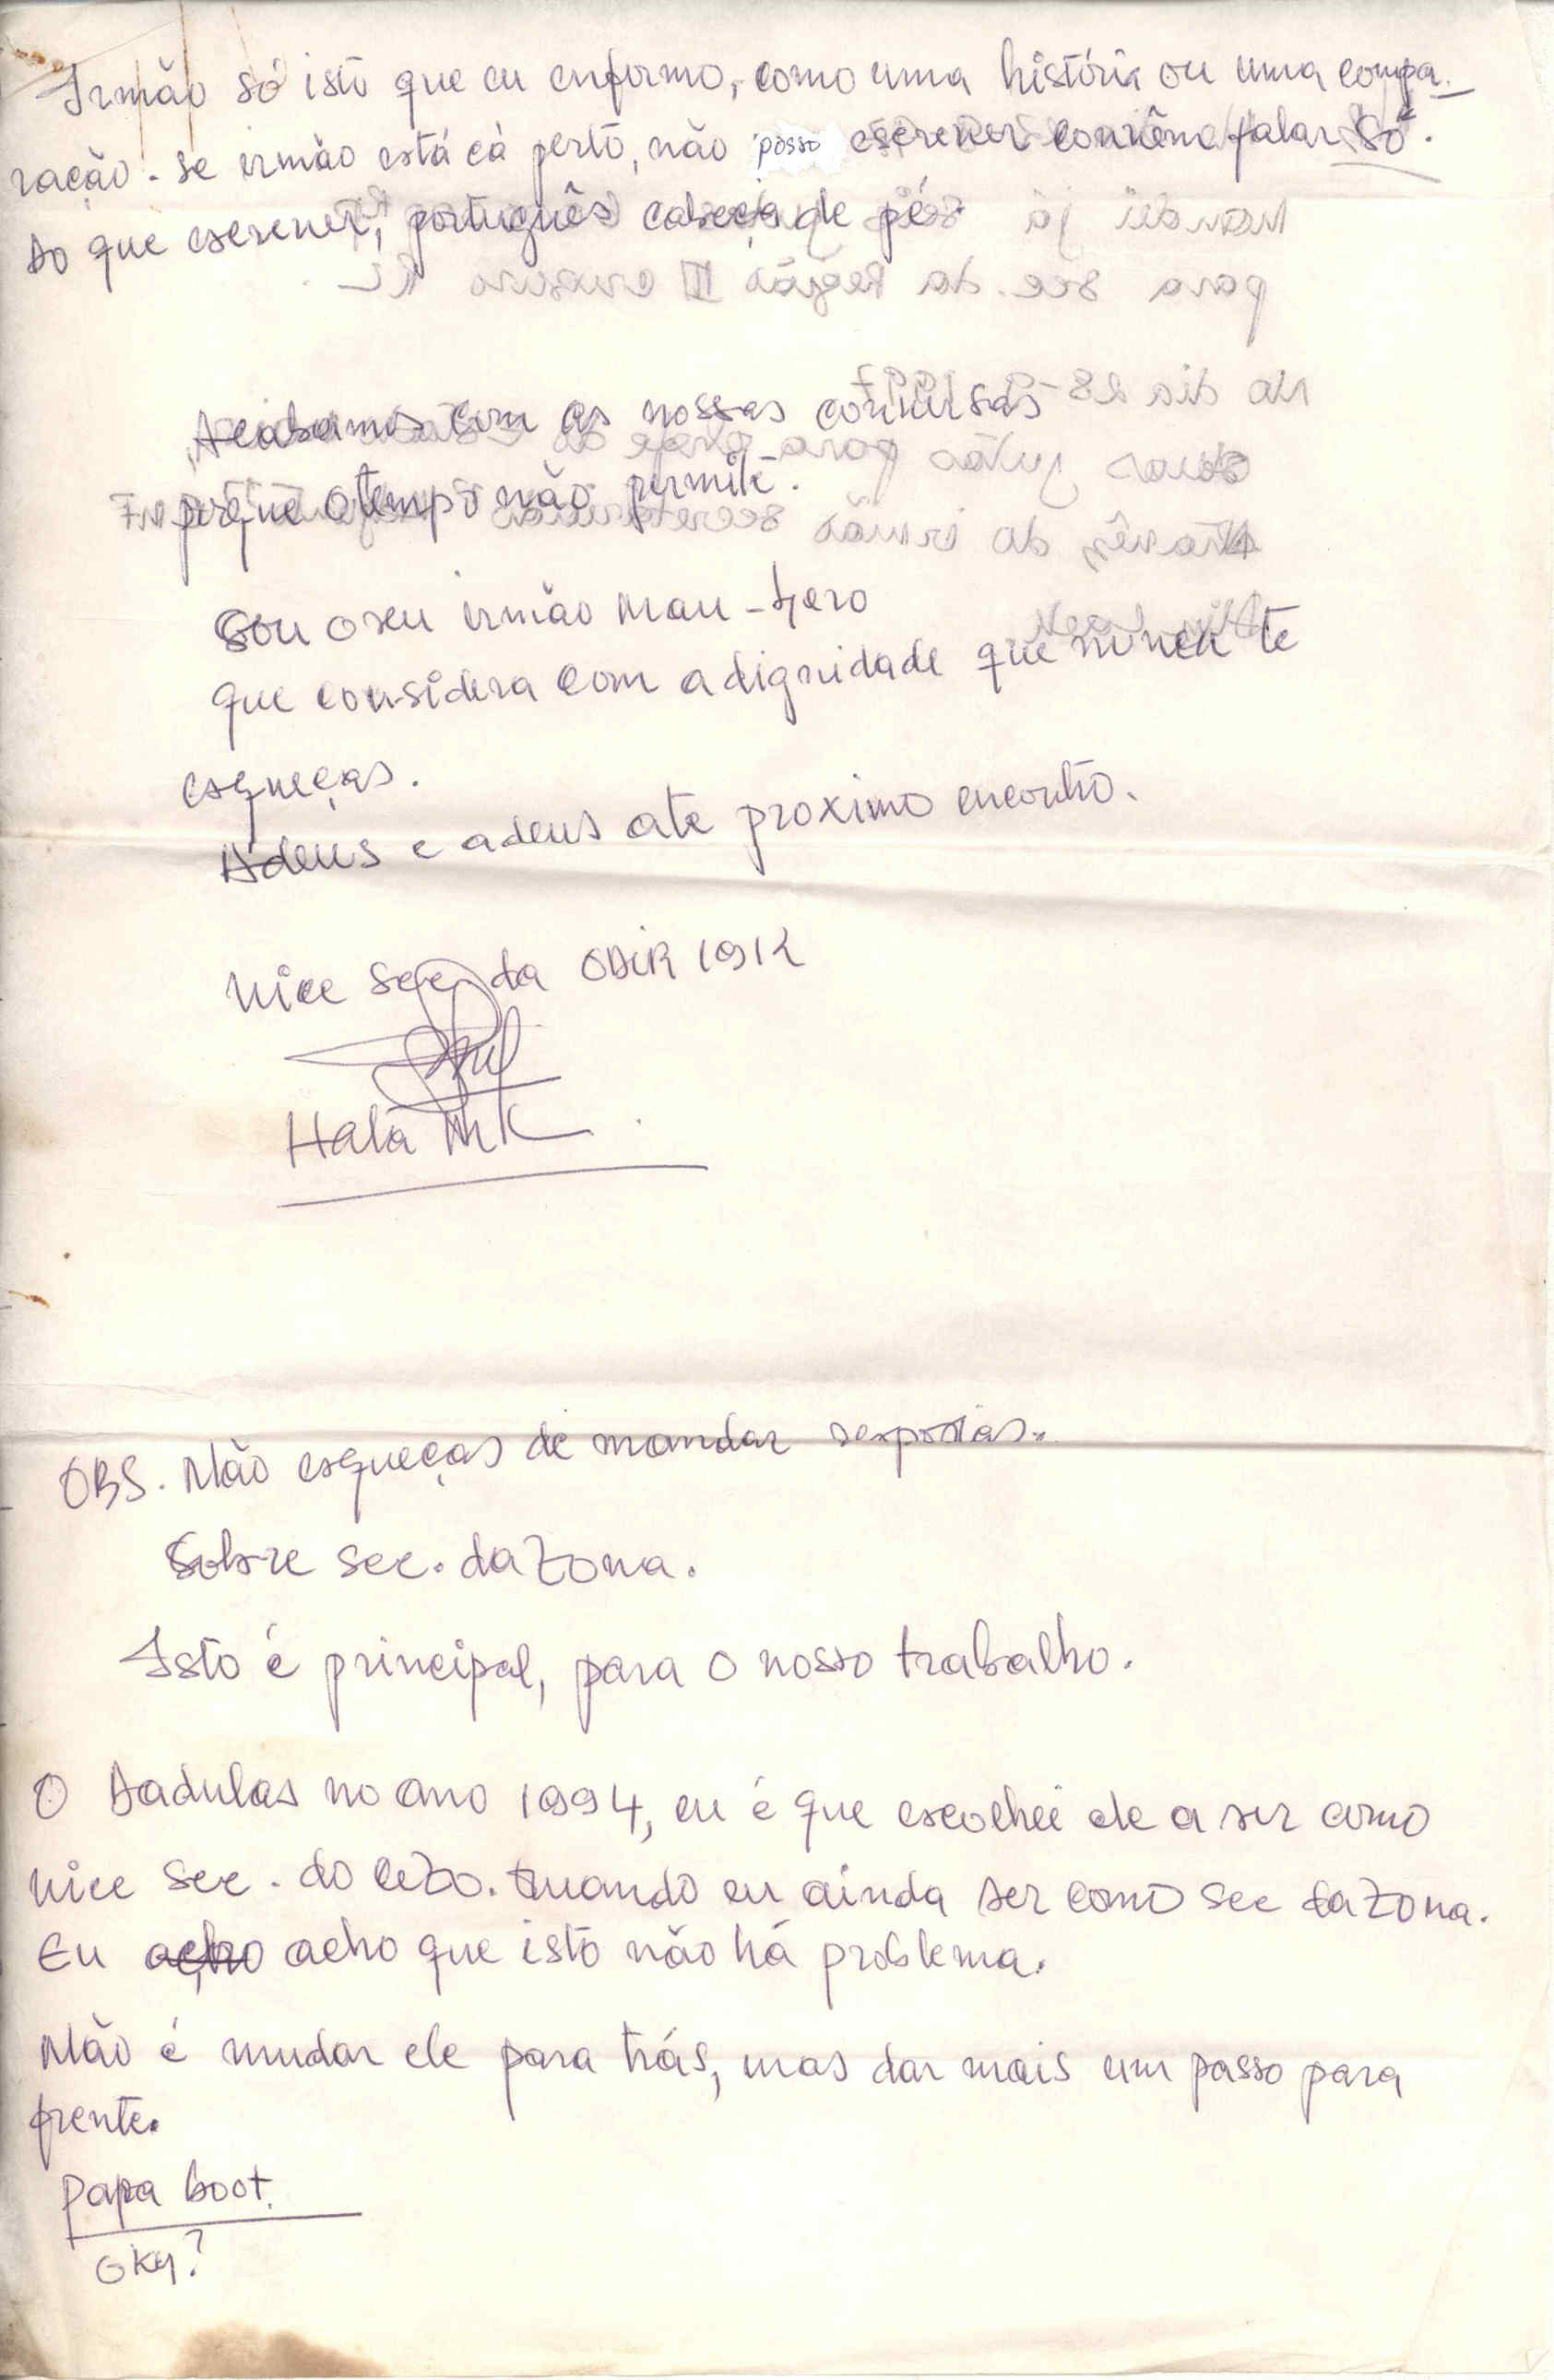 Irmão só isto que eu enformo, como uma história ou uma compa-
ração. se irmão está cá perto, não posso escrever convêm falar só.
do que escrever, português cabeça de pé.
Acabamos com as nossas conversas
porque o tempo não permite.
Sou o seu irmão Mau-
que considera com a dignidade que nunca te
esqueças.
Adeus e adeus ate proximo encontro.
Vice Sec. da ODIR 1912
Halá MK
OBS. Não esqueças de mandar respostas.
Sobre sec. da Zona.
Isto é principal, para o nosso trabalho.
O Dadulas no ano 1994, eu é que escolhei ele a ser como
vice Sec. do CEZO. Quando eu ainda ser como sec da Zona.
Eu acho acho que isto não há problema.
Não é mudar ele para trás, mas dar mais um passo para
frente.
Papa boot.
Oky?